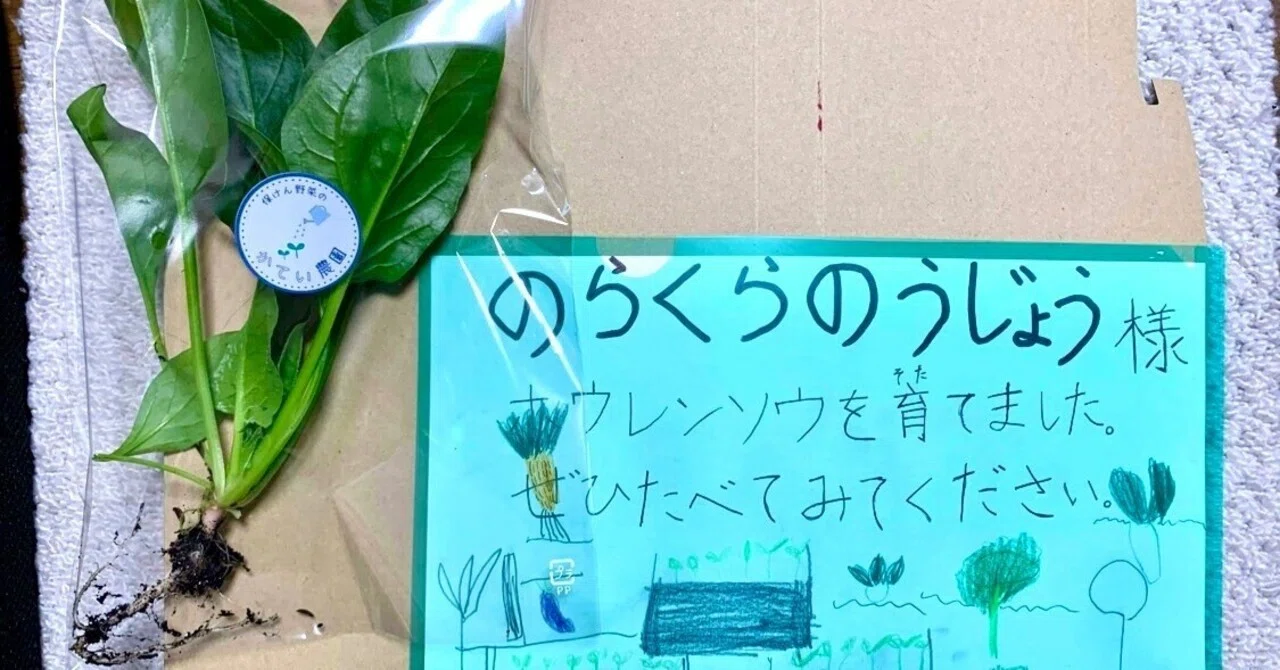 保けん野菜の
かてい農園
のらくらのうじょう様
そだ
ホウレンソウを育てました。
ぜひたべてみてください。
プラ
PP